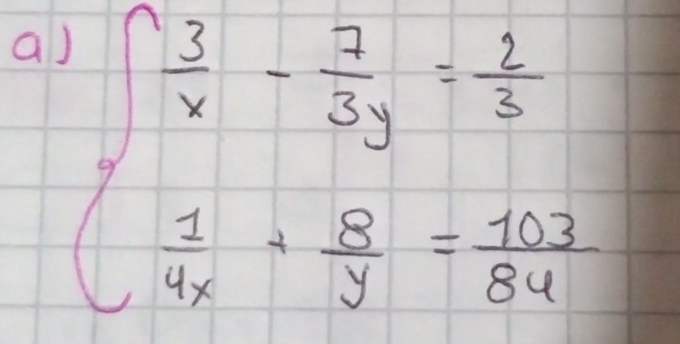 a) { 3/x - 7/3y = 2/3
1/4x + 8/y = 103/84